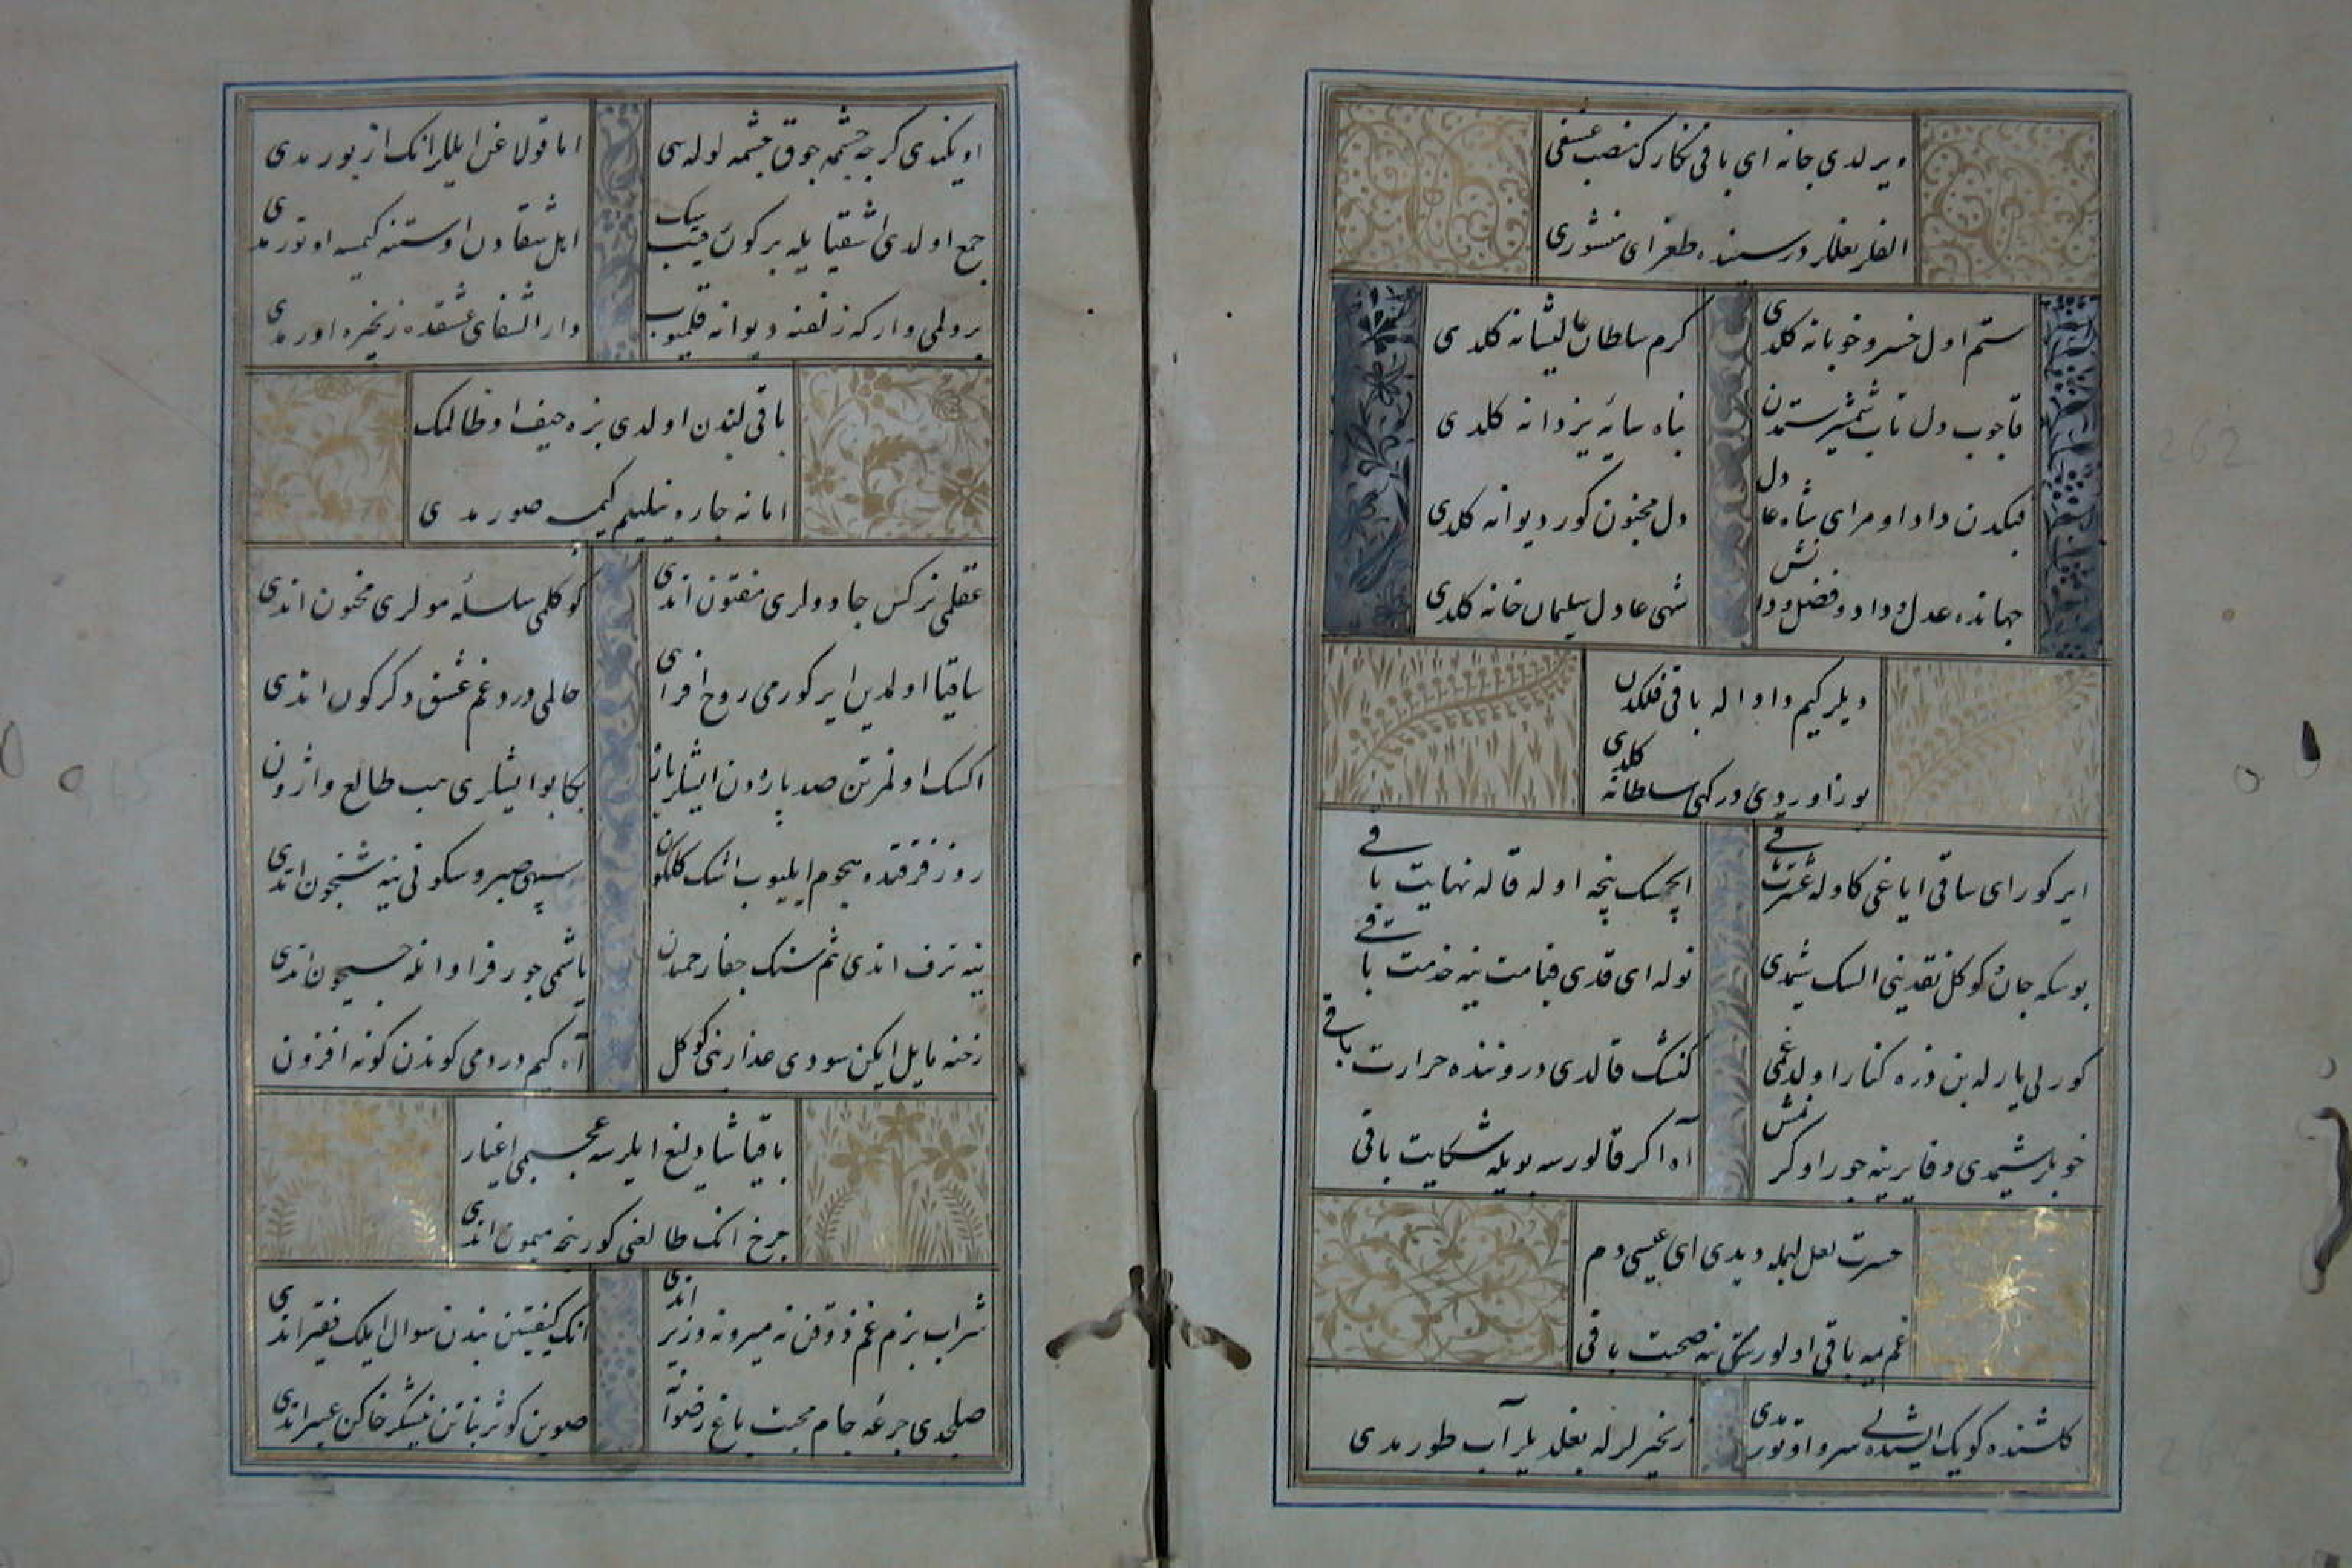 ویرلدی جانه ای باقی نکارک منصب عشقی
الفلر نعللر در سینه ده طغرای منشوری
ستم اول خسرو خوبانه کلدی
کرم سلطان عالیشانه کلدی
قاجوب دل تاب شمشیر ستمدن
پناه سایهٔ یزدانه کلدی
فلکدن داد اومر ای شاه عادل
دل مجنون کور دیوانه کلدی
جهانده عدل و داد و فضل و دانش
شهی عادل سلیمان خانه کلدی
دیلر کیم داد اله باقی فلکدن
یوز اوردی درکه سلطانه کلدی
ایرکور ای ساقی ایاغی کاوله عشرت باقی
ایچسک نیجه اوله قاله نهایت باقی
بوسکه جان کوکل نقدینی السک شیمدی
نوله ای قدی قیامت ینه خدمت باقی
کورلی یارله بن ذره کنار اولدغمی
کنشک قالدی دروننده حرارت باقی
خوبلر شیمدی وفا یرینه جور اوکرنمش
آه اکر قالورسه بویله شکایت باقی
حسرت لعل لبمله دیدی ای عیسی دم
غم یمه باقی اولور سکا ینه صحبت باقی
کلشنده کویک ایشیدلی سرو اوتورمدی
زنجیرلرله بغلدیلر آب طورمدی
اویکندی کرچه چشمه چوق چشمه لوله سی
اما قولاغن ایللر انک از بورمدی
جمع اولدی اشقیا ایله بر کون رقیبک
اهل شقادن اوستنه کیمسه اوتورمدی
بر ولمی وار که زلفنه دیوانه قلمیوب
دار الشفای عشقده زنجیره اورمدی
باقی لبندن اولدی بزه حیف او ظالمک
اما نه چاره نیلیلم کیمسه صورمدی
عقلمی نرکس جادولری مفتون اندی
کوکلمی سلسلهٔ مولری مجنون اندی
ساقیا اولدین ایرکور می روح افزای
حالمی درد و غم عشق دکرکون اندی
اکسک اولمز تن صد پارهدن ایشلر یاره
بکا بو ایشلری هب طالع واژون
روز فرقتده هجوم ایلیوب اشک کلکون
سپه صبر و سکونی ینه شبخون اندی
ینه ترف اندی تنم سنک جفا رحمدن
یاشمی جور فراوانله جیحون اندی
زخنه مایل ایکن سودی عذارینی کوکل
آه کیم دردمی کوندن کونه افزون
باقیا شاد لغ ایلرسه عجبمی اغیار
چرخ انک طالعنی کور نجه میمون اندی
شراب بزم غم ذوقن نه میر و نه وزیر اندی
انک کیفیتین بندن سوال ایلک فقیر اندی
صاچلدی جرعهٔ جام محبت باغ رضوانه
صوین کوثر نباتن نیشکر خاکن عبیر اندی